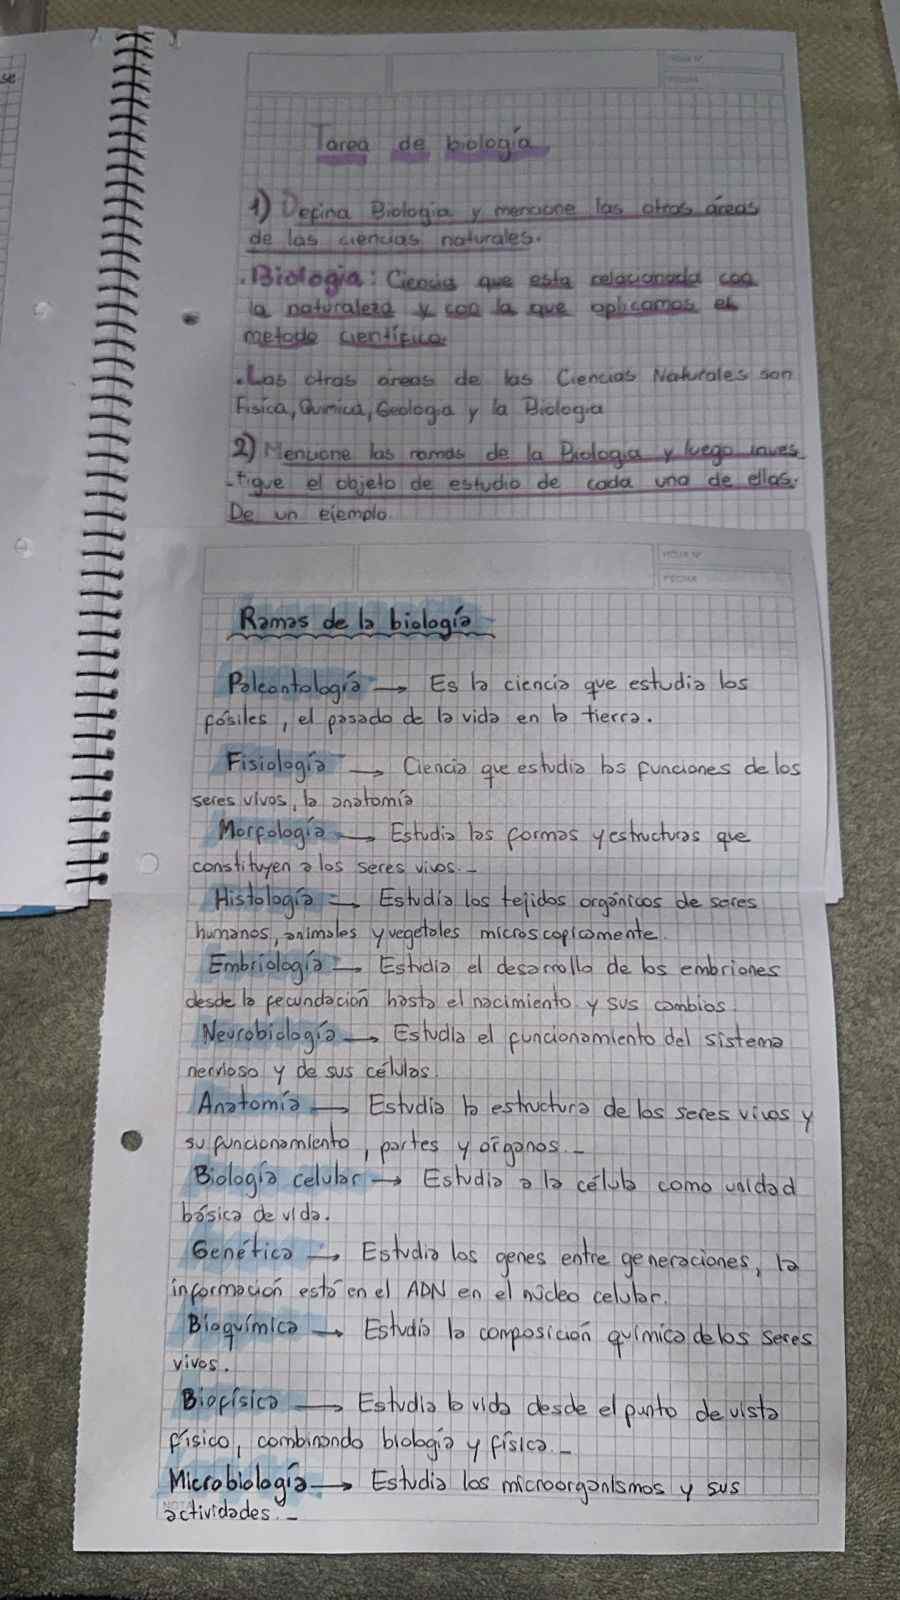 se
HOJA Nº
FECHA
Tarea de biología
1) Defina Biologia y mencione las otras áreas
de las ciencias naturales.
. Biologia: Ciencia que esta relacionada con
la naturaleza y con la que aplicamos el
metodo científico.
. Las otras areas de las Ciencias Naturales son
Fisica, Quimica, Geologia y la Biologia
2) Mencione las ramas de la Biologia y luego inves
-tigue el objeto de estudio de cada una de ellas.
De un ejemplo.
HOJA Nº
FECHA
Ramas de la biología
Paleontología → Es la ciencia que estudia los
fósiles, el pasado de la vida en la tierra.
Fisiología → Ciencia que estudia las funciones de los
seres vivos, la anatomía
Morfología → Estudia las formas y estructuras que
constituyen a los seres vivos.-
Histología → Estudia los tejidos orgánicos de seres
humanos, animales y vegetales microscopicamente.
Embriología → Estudia el desarrollo de los embriones
desde la fecundación hasta el nacimiento y sus cambios.
Neurobiología → Estudia el funcionamiento del sistema
nervioso y de sus células.
Anatomía → Estudia la estructura de los seres vivos y
su funcionamiento, partes y órganos.-
Biología celular → Estudia a la célula como unidad
básica de vida.
Genética → Estudia los genes entre generaciones, la
información está en el ADN en el núcleo celular.
Bioquímica → Estudia la composición química de los seres
vivos.
Biofísica → Estudia la vida desde el punto de vista
físico, combinando biología y física.-
Microbiología → Estudia los microorganismos y sus
NOTA
actividades.-